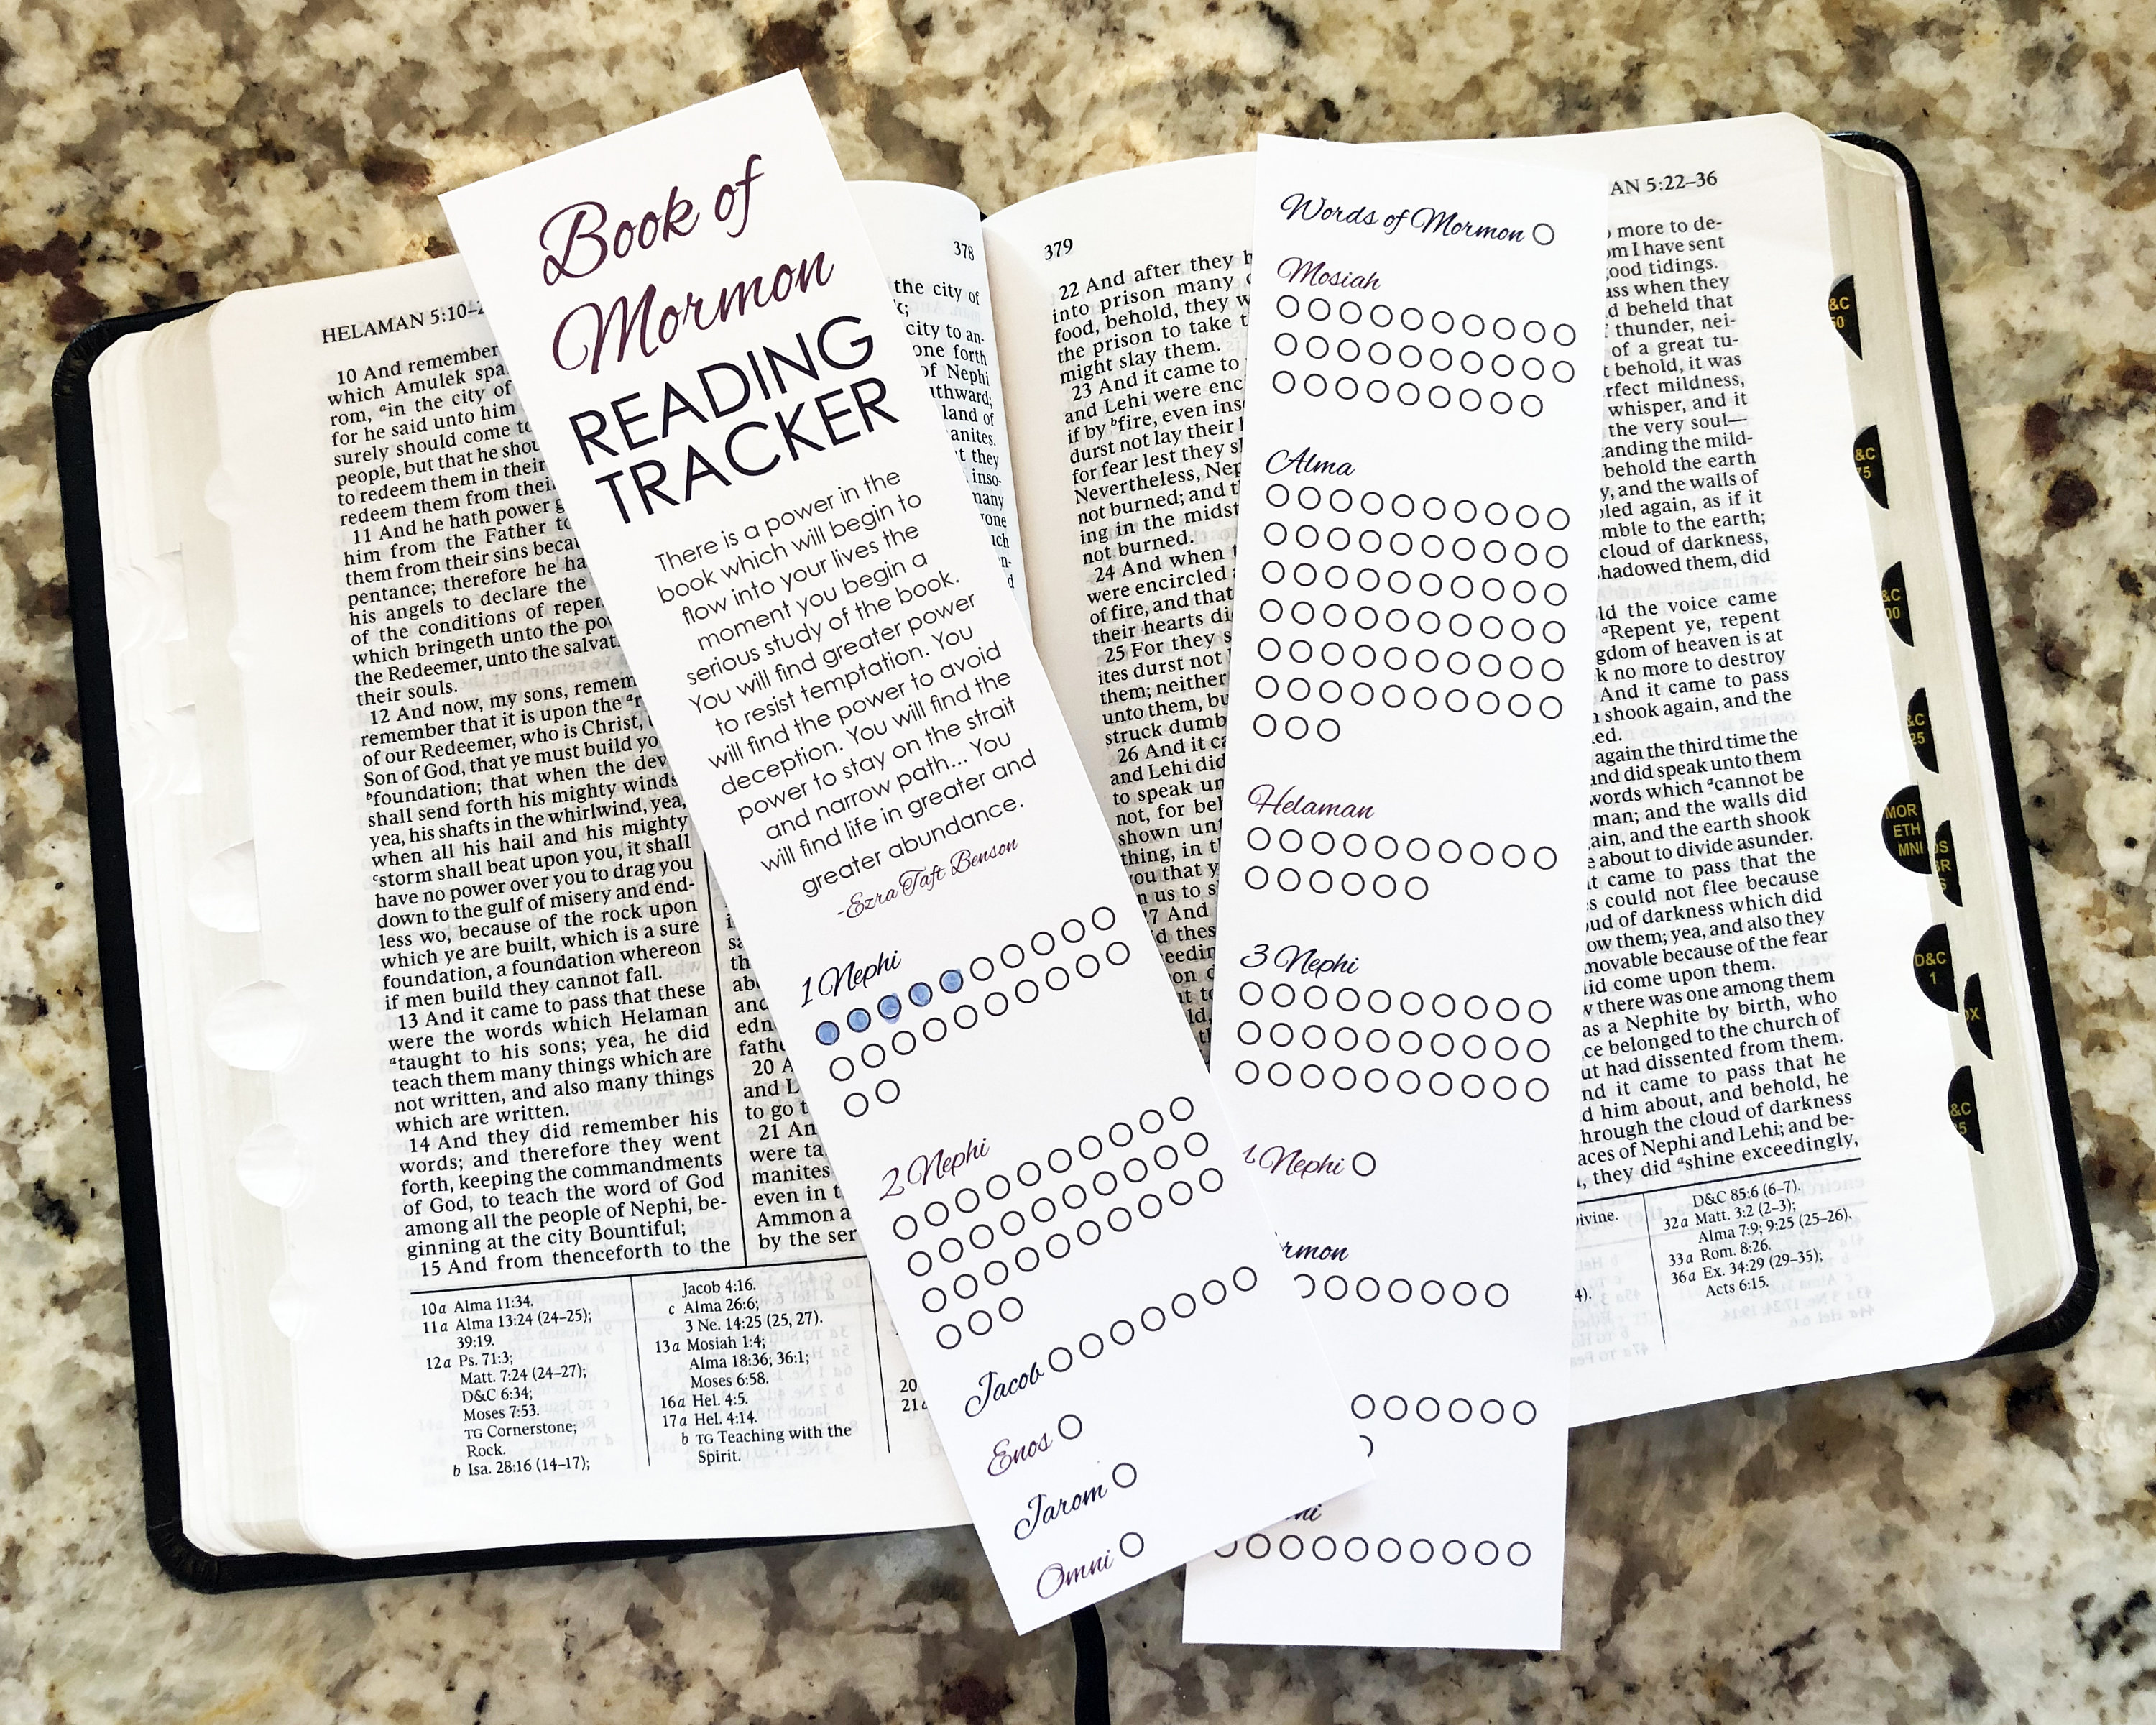 HELAMAN 5:10–2
10 And remember
which Amulek spa
rom, ᵃin the city of
for he said unto him
surely should come to
people, but that he shou
to redeem them in their
redeem them from thei
11 And he hath power g
him from the Father to
them from their sins beca
pentance; therefore he ha
his angels to declare the
of the conditions of repen
which bringeth unto the po
the Redeemer, unto the salvat
their souls.
12 And now, my sons, remem
remember that it is upon the ᵃr
of our Redeemer, who is Christ,
Son of God, that ye must build yo
ᵇfoundation; that when the dev
shall send forth his mighty winds
yea, his shafts in the whirlwind, yea,
when all his hail and his mighty
ᶜstorm shall beat upon you, it shall
have no power over you to drag you
down to the gulf of misery and end-
less wo, because of the rock upon
which ye are built, which is a sure
foundation, a foundation whereon
if men build they cannot fall.
13 And it came to pass that these
were the words which Helaman
ᵃtaught to his sons; yea, he did
teach them many things which are
not written, and also many things
which are written.
14 And they did remember his
words; and therefore they went
forth, keeping the commandments
of God, to teach the word of God
among all the people of Nephi, be-
ginning at the city Bountiful;
15 And from thenceforth to the
378
the city of
k;
city to an-
one forth
of Nephi
uthward;
land of
anites.
t they
inso-
many
20 A
and L
to go t
21 An
were ta
manites
even in t
Ammon a
by the ser
10a Alma 11:34.
11a Alma 13:24 (24–25);
39:19.
12a Ps. 71:3;
Matt. 7:24 (24–27);
D&C 6:34;
Moses 7:53.
TG Cornerstone;
Rock.
b Isa. 28:16 (14–17);
Jacob 4:16.
c Alma 26:6;
3 Ne. 14:25 (25, 27).
13a Mosiah 1:4;
Alma 18:36; 36:1;
Moses 6:58.
16a Hel. 4:5.
17a Hel. 4:14.
b TG Teaching with the
Spirit.
20
21a
Book of
Mormon
READING
TRACKER
There is a power in the
book which will begin to
flow into your lives the
moment you begin a
serious study of the book.
You will find greater power
to resist temptation. You
will find the power to avoid
deception. You will find the
power to stay on the strait
and narrow path... You
will find life in greater and
greater abundance.
-Ezra Taft Benson
1 Nephi
2 Nephi
Jacob
Enos
Jarom
Omni
379
22 And after they h
into prison many
food, behold, they w
the prison to take t
might slay them.
23 And it came to
and Lehi were enc
if by ᵇfire, even inso
durst not lay their h
for fear lest they sl
Nevertheless, Nep
not burned; and t
ing in the midst
not burned.
24 And when t
were encircled
of fire, and that
their hearts di
25 For they s
ites durst not l
them; neither
unto them, bu
struck dumb
26 And it ca
and Lehi did
to speak un
not, for beh
shown unt
thing, in th
you that y
n us to s
27 And
Words of Mormon
Mosiah
Alma
Helaman
3 Nephi
4 Nephi
rmon
ni
AN 5:22–36
more to de-
om I have sent
ood tidings.
ass when they
d beheld that
thunder, nei-
of a great tu-
t behold, it was
rfect mildness,
whisper, and it
the very soul—
anding the mild-
behold the earth
y, and the walls of
led again, as if it
mble to the earth;
cloud of darkness,
hadowed them, did
ld the voice came
ᵃRepent ye, repent
gdom of heaven is at
k no more to destroy
And it came to pass
shook again, and the
ed.
again the third time the
and did speak unto them
words which ᵃcannot be
man; and the walls did
ain, and the earth shook
e about to divide asunder.
t came to pass that the
s could not flee because
oud of darkness which did
ow them; yea, and also they
movable because of the fear
did come upon them.
w there was one among them
as a Nephite by birth, who
ce belonged to the church of
ut had dissented from them.
nd it came to pass that he
d him about, and behold, he
hrough the cloud of darkness
aces of Nephi and Lehi; and be-
, they did ᵃshine exceedingly,
Divine.
4).
D&C 85:6 (6–7).
32a Matt. 3:2 (2–3);
Alma 7:9; 9:25 (25–26).
33a Rom. 8:26.
36a Ex. 34:29 (29–35);
Acts 6:15.
MOR
ETH
MNI
D&C
1